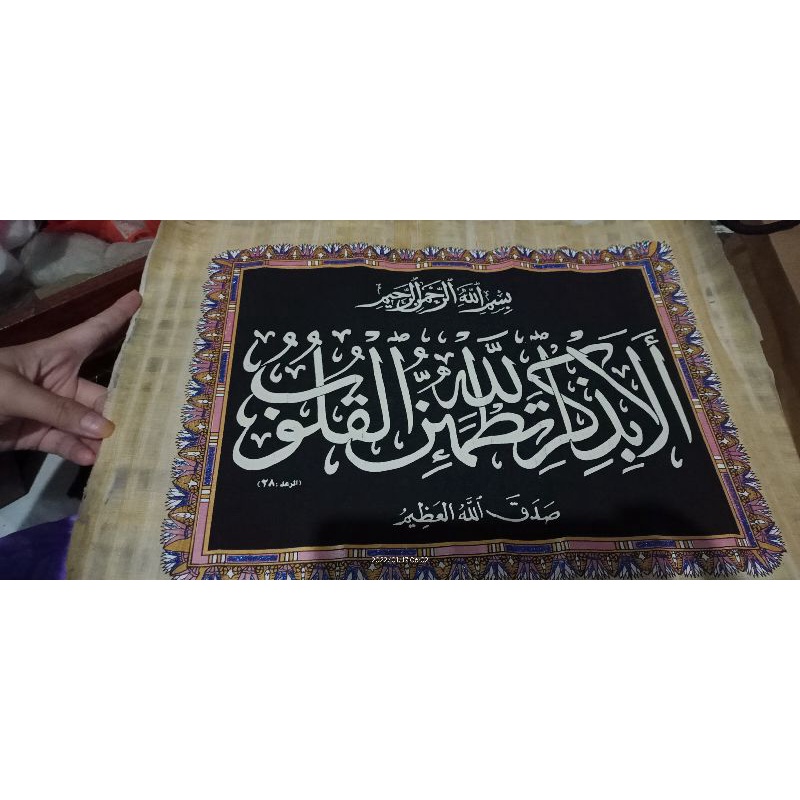 بِسْمِ اللَّهِ الرَّحْمَنِ الرَّحِيمِ
أَلَا بِذِكْرِ اللَّهِ تَطْمَئِنُّ الْقُلُوبُ
(الرعد: ٢٨)
صَدَقَ اللَّهُ الْعَظِيمُ
2022/01/17 06:02